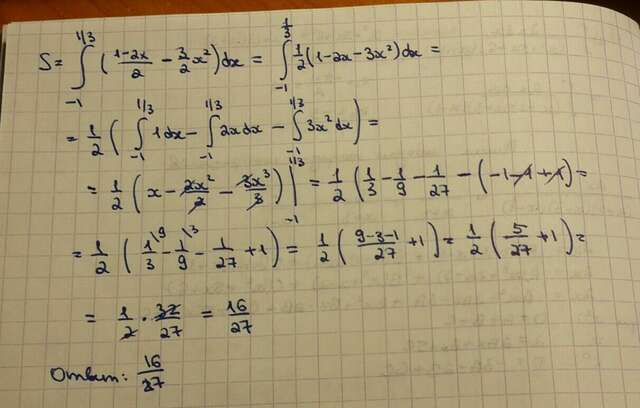 S = ∫_{-1}^{1/3} ( (1-2x)/2 - 3/2 x² ) dx = ∫_{-1}^{1/3} 1/2 (1-2x-3x²) dx =
= 1/2 ( ∫_{-1}^{1/3} 1 dx - ∫_{-1}^{1/3} 2x dx - ∫_{-1}^{1/3} 3x² dx ) =
= 1/2 ( x - 2x²/2 - 3x³/3 ) |_{-1}^{1/3} = 1/2 ( 1/3 - 1/9 - 1/27 - (-1-1+1) ) =
= 1/2 ( 1\9/3 - 1\3/9 - 1/27 + 1 ) = 1/2 ( (9-3-1)/27 + 1 ) = 1/2 ( 5/27 + 1 ) =
= 1/2 · 32/27 = 16/27
Ответ: 16/27